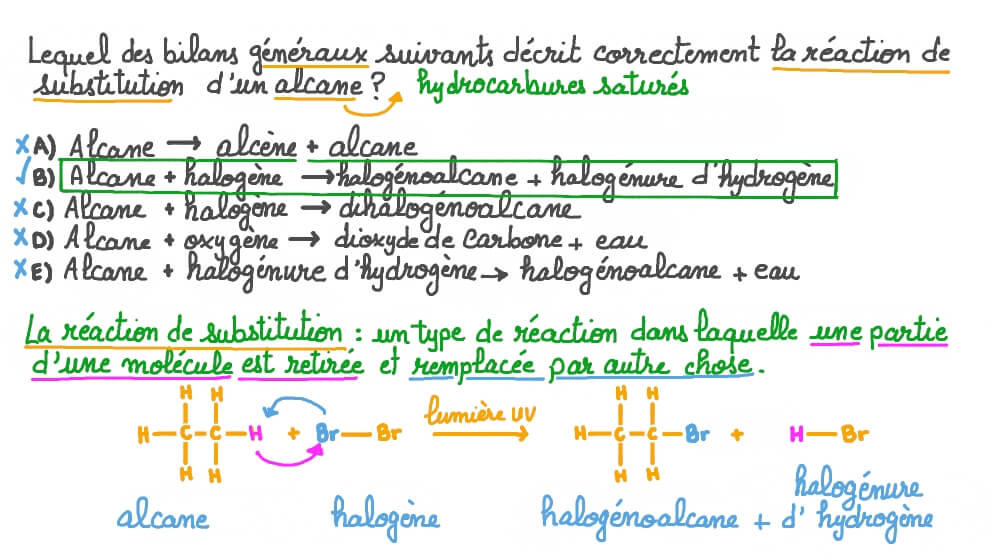 Lequel des bilans généraux suivants décrit correctement la réaction de
substitution d'un alcane ? hydrocarbures saturés
x A) Alcane → alcène + alcane
✓ B) Alcane + halogène → halogénoalcane + halogénure d'hydrogène
x C) Alcane + halogène → dihalogénoalcane
x D) Alcane + oxygène → dioxyde de carbone + eau
x E) Alcane + halogénure d'hydrogène → halogénoalcane + eau
La réaction de substitution : un type de réaction dans laquelle une partie
d'une molécule est retirée et remplacée par autre chose.
H H H H
lumière UV
H—C—C—H + Br—Br → H—C—C—Br + H—Br
H H H H
alcane halogène halogénoalcane + halogénure
d'hydrogène